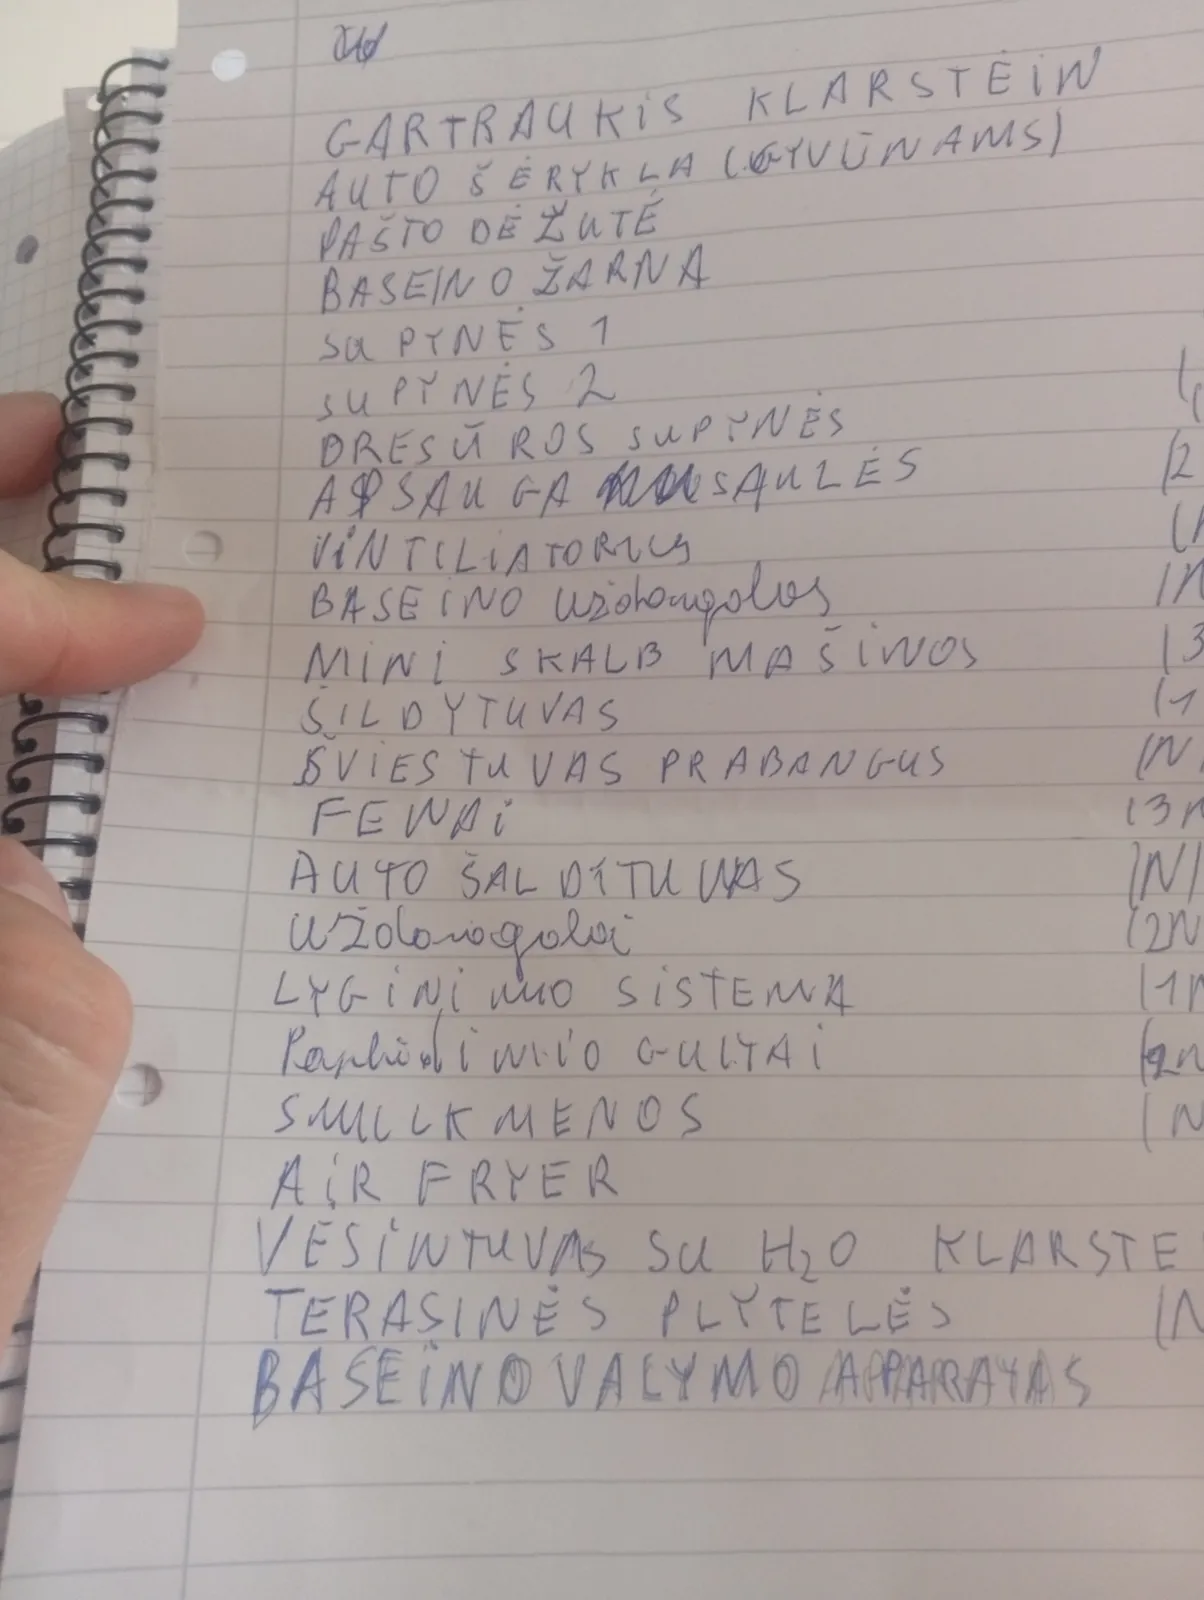 GARTRAUKIS KLARSTEIN
AUTO ŠĖRYKLA (GYVŪNAMS)
PAŠTO DĖŽUTĖ
BASEINO ŽARNA
SUPYNĖS 1
SUPYNĖS 2
DRESŪROS SUPYNĖS
APSAUGA SAULĖS (2
VINTILIATORIUS
BASEINO uždangalas
MINI SKALB MAŠINOS (3
ŠILDYTUVAS (1
ŠVIESTUVAS PRABANGUS (N
FENAI (3N
AUTO ŠALDYTUVAS (N
Uždangalai (2N
LYGINIMO SISTEMA (1N
Paplūdimio GULTAI (2N
SMULLKMENOS (N
AIR FRYER
VĖSINTUVAS SU H2O KLARSTE
TERASINĖS PLYTELĖS (N
BASEINO VALYMO APARATAS